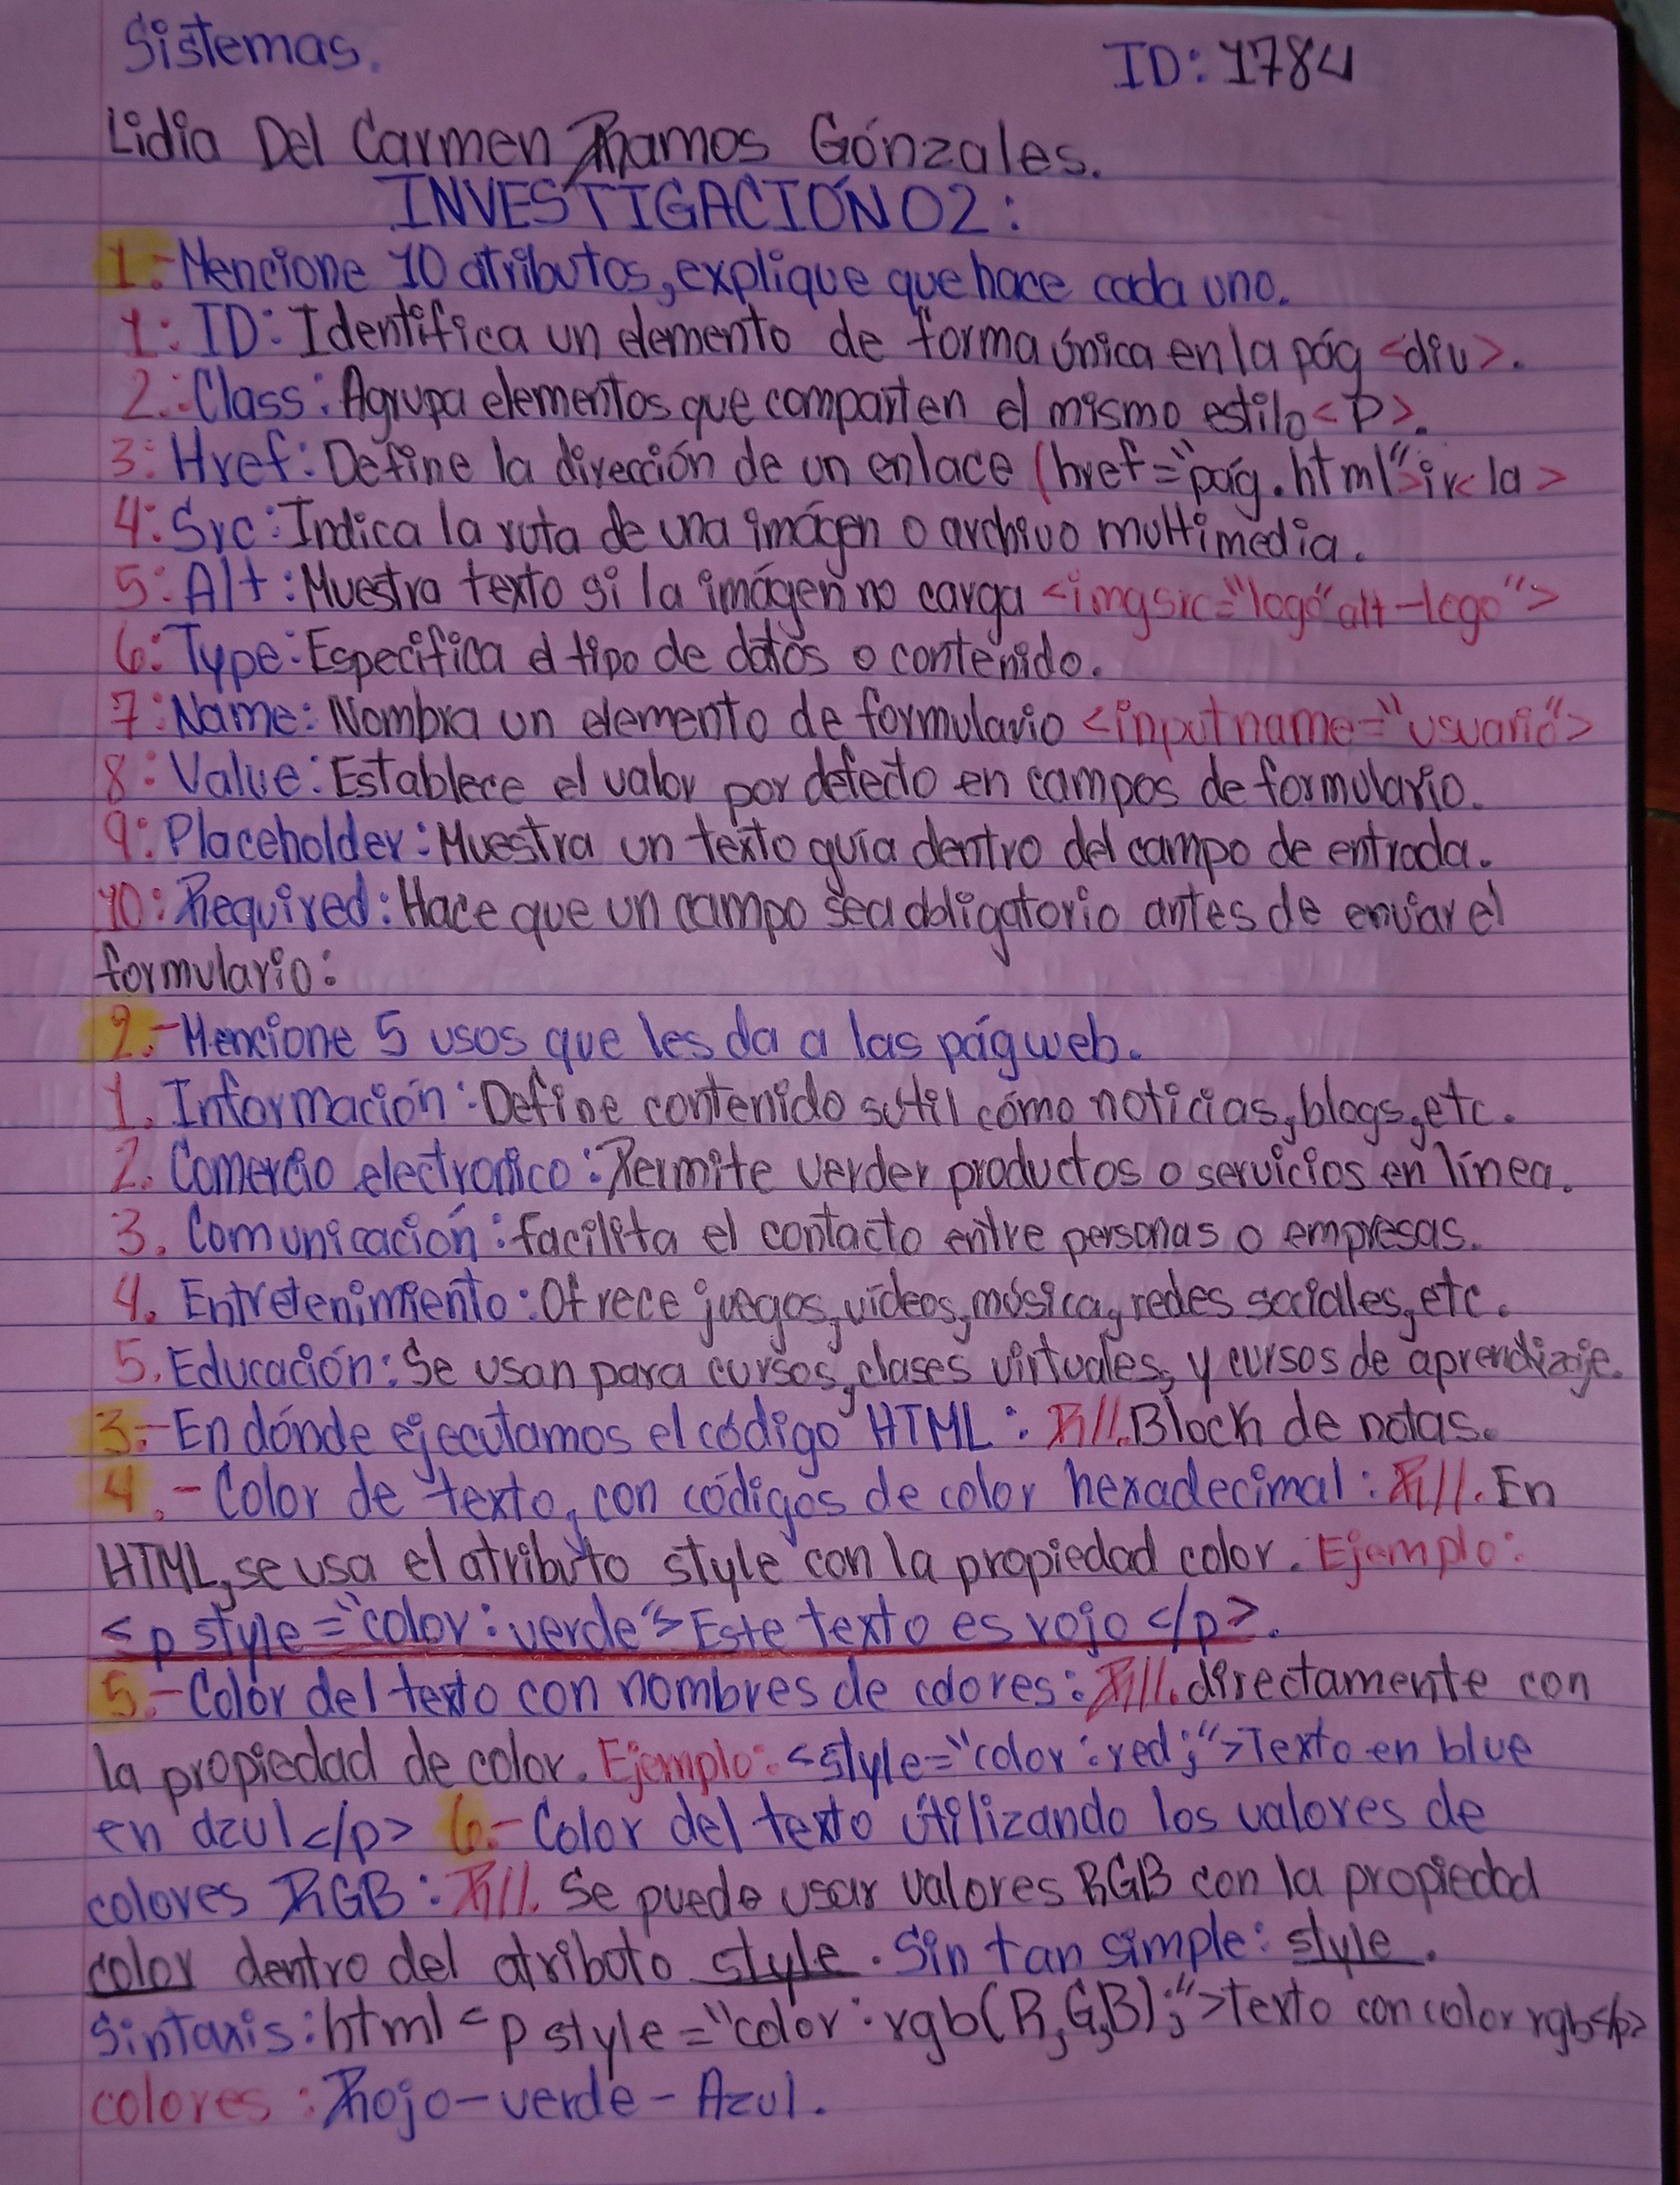 Sistemas.
ID: 1784
Lidia Del Carmen Ramos Gónzales.
INVESTIGACIÓN 02:
1.- Mencione 10 atributos, explique que hace cada uno.
1: ID: Identifica un elemento de forma única en la pág <div>.
2.: Class: Agrupa elementos que comparten el mismo estilo <P>.
3: Href: Define la dirección de un enlace (href="pág.html">ir<la>
4: Src: Indica la ruta de una imágen o archivo multimedia.
5: Alt: Muestra texto si la imágen no carga <imgsrc="logo"alt-logo">
6: Type: Especifica el tipo de datos o contenido.
7: Name: Nombra un elemento de formulario <inputname="usuario">
8: Value: Establece el valor por defecto en campos de formulario.
9: Placeholder: Muestra un texto guía dentro del campo de entrada.
10: Required: Hace que un campo sea obligatorio antes de enviar el
formulario:
2.- Mencione 5 usos que les da a las pág web.
1. Información: Define contenido sutil cómo noticias, blogs, etc.
2. Comercio electronico: Permite verder productos o servicios en línea.
3. Comunicación: facilita el contacto entre personas o empresas.
4. Entretenimiento: Ofrece juegos, vídeos, música, redes sociales, etc.
5. Educación: Se usan para cursos, clases virtuales, y cursos de aprendizaje.
3.- En dónde ejecutamos el código HTML: R//. Block de notas.
4.- Color de texto, con códigos de color hexadecimal: R//. En
HTML, se usa el atributo style con la propiedad color. Ejemplo:
<p style="color: verde"> Este texto es rojo </p>.
5.- Color del texto con nombres de colores: R//. directamente con
la propiedad de color. Ejemplo: <style="color: red;">Texto en blue
en azul </p> 6.- Color del texto útilizando los valores de
colores RGB: R//. Se puede usar valores RGB con la propiedad
color dentro del atributo style. Sin tan simple: style.
Sintaxis: html <p style="color: rgb(R,G,B);">Texto con color rgb</p>
colores: Rojo - verde - Azul.